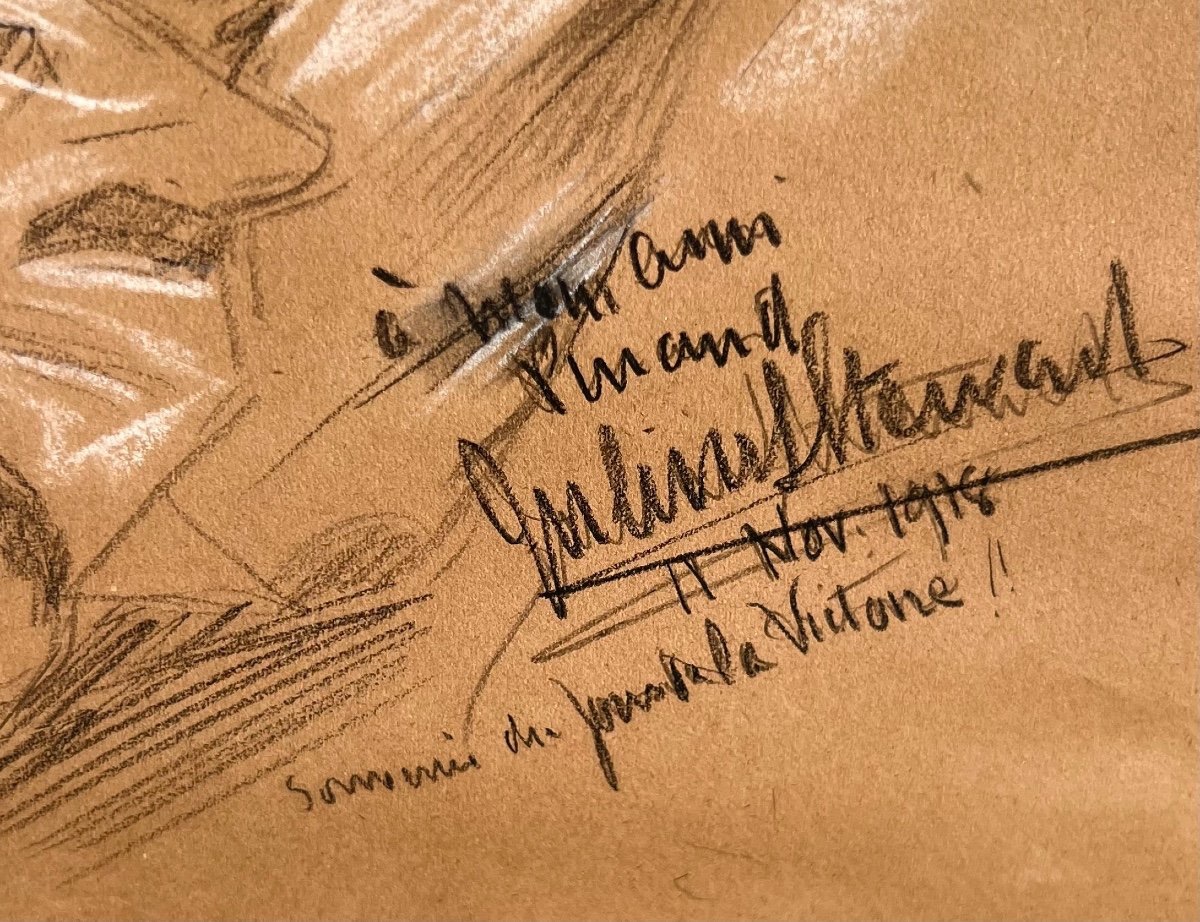 à Mon ami
Pinaud
Julius Stewart
11 Nov. 1918
Souvenir du jour de la Victoire !!